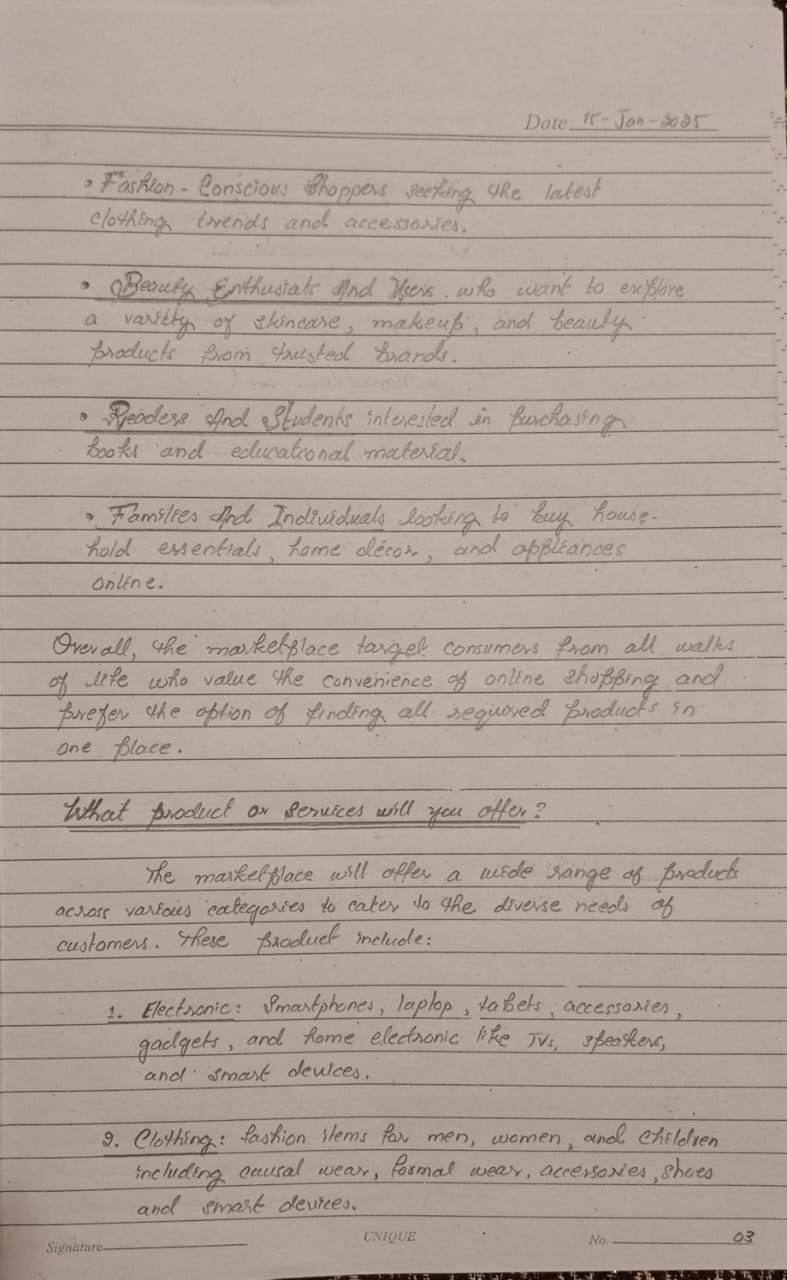 Date 15-Jan-2025
• Fashion-Conscious Shoppers seeking the latest
clothing trends and accessories.
• Beauty Enthusiats And Users. who want to explore
a variety of skincare, makeup, and beauty
products from trusted brands.
• Readers And Students interested in purchasing
books and educational material.
• Families And Individuals looking to buy house-
hold essentials, home décor, and appliances
online.
Overall, the marketplace target consumers from all walks
of life who value the convenience of online shopping and
prefer the option of finding all required products in
one place.
What product or services will you offer?
The marketplace will offer a wide range of products
across various categories to cater to the diverse needs of
customers. These product include:
1. Electronic: Smartphones, laptop, tabets, accessories,
gadgets, and home electronic like TVs, speakers,
and smart devices.
2. Clothing: fashion items for men, women, and children
including causal wear, formal wear, accessories, shoes
and smart devices.
Signature UNIQUE No. 03